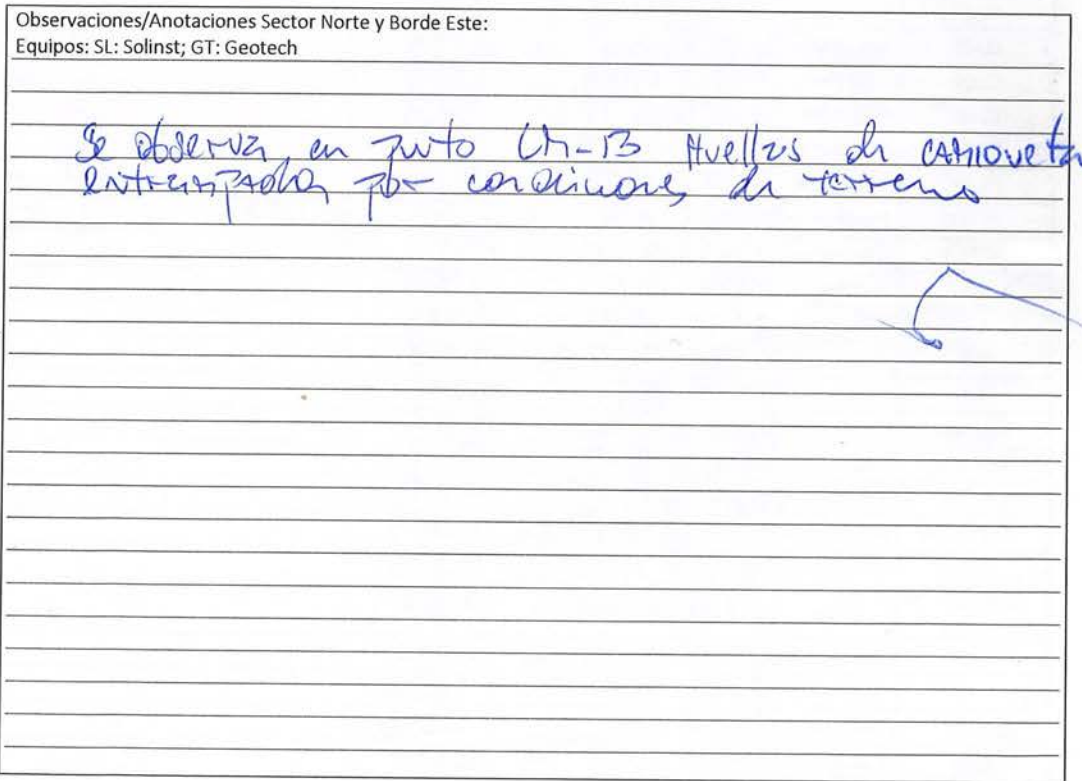 Observaciones/Anotaciones Sector Norte y Borde Este:
Equipos: SL: Solinst; GT: Geotech
Se observa en punto LM-13 Huellas de camioneta
entrampada por condiciones de terreno